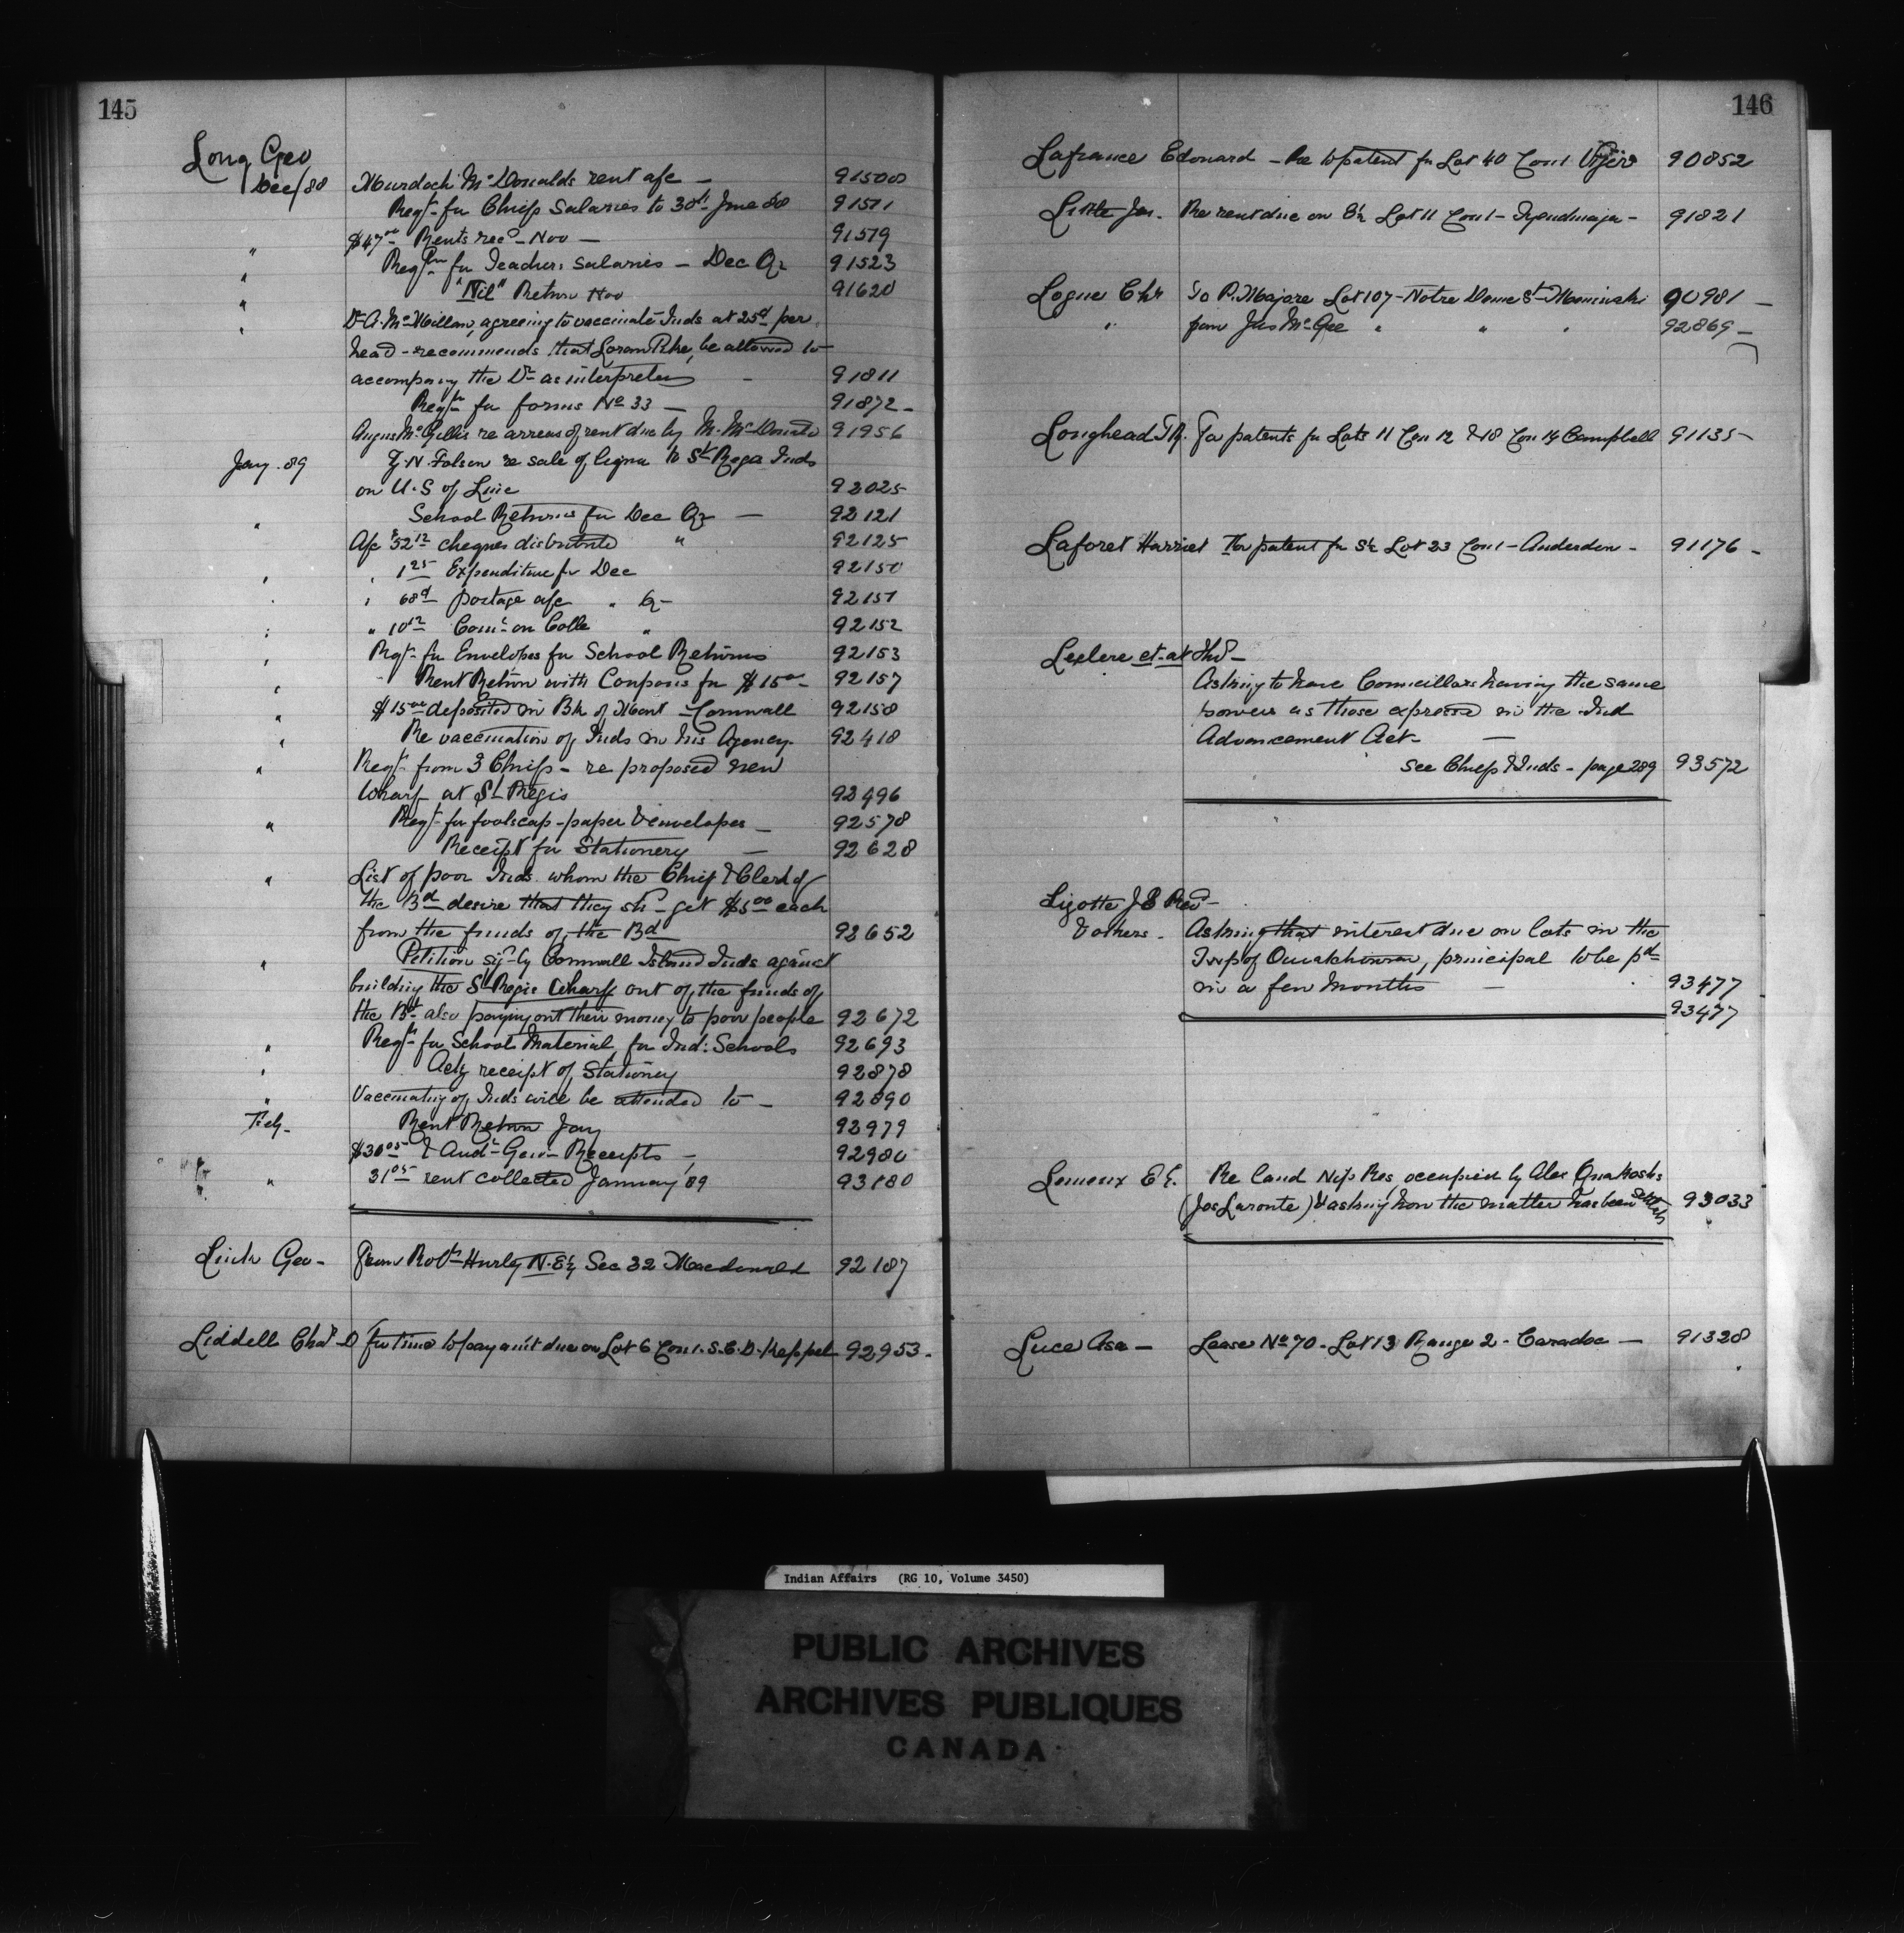 145
Long Geo
Dec/88 Murdoch McDonalds rent a/c — 91508
Reqt for Chiefs Salaries to 30th June 88 91511
" $47.00 Rents recd - Nov — 91519
" Reqtn for Teachers salaries — Dec Qr 91523
" "Nil" Return Nov 91620
" Dr A. McMillan, agreeing to vaccinate Inds at 25ct per
head - recommends that Loran Pike, be allowed to
accompany the Dr as interpreter — 91811
Reqtn for forms No 33 — 91872 -
Angus McGillis re arrears of rent due by M. McDonald 91956
Jany. 89 F. N. Folsom re sale of liquor to St Regis Inds
on U.S of Line 92025
" School Returns for Dec Qr — 92121
A/c $32.12 cheques distributed " 92125
" " 1.25 Expenditure for Dec 92150
" " 68ct postage a/c " Qr - 92151
" " 10.12 Comn on Colle " 92152
" Reqt for Envelopes for School Returns 92153
" Rent Return with Coupons for $15.00 - 92157
" $15.00 deposited in Bk of Mont - Cornwall 92158
" Re vaccination of Inds on his Agency - 92418
" Reqt from 3 Chiefs - re proposed new
wharf at St Regis 92496
" Reqt for foolscap - paper & envelopes — 92578
Receipt for Stationery — 92628
" List of poor Inds whom the Chief & Clerk of
the Bd desire that they shd get $5.00 each
from the funds of the Bd 92652
" Petition sigd by Cornwall Island Inds against
building the St Regis Wharf out of the funds of
the Bd also paying out their money to poor people 92672
" Reqtn for School Material for Ind: Schools 92693
" Ackg receipt of Stationery 92878
" Vaccinating of Inds will be attended to — 92890
Feby - Rent Return Jany 92979
$30.05 & Audr Genl Receipts — 92980
" 31.05 rent collected January 89 93180
Geo - From Robt Hurley N.E¼ Sec 32 Macdonald 92187
Liddell Chas D for time to pay amt due on Lot 6 Con 1. S.C.D. Keppel 92953 -
146
Lafrance Edouard — Re to patent for Lot 40 Con 1 Viger 90852
Little Jas. Re rent due on E½ Lot 11 Con 1 - Tyendinaga - 91821
Logue Chs To P. Majore Lot 107 - Notre Dame St - Maniwaki 90981 —
" from Jas McGee " " " 92869 —
Longhead J R. For patents for Lots 11 Con 12 & 18 Con 14 Campbell 91135 -
Laforet Harriet For patent for S½ Lot 23 Con 1 - Anderdon - 91176 -
Leclere et-al
Asking to have Councillors having the same
powers as those expressed in the Ind
Advancement Act — —
See Chiefs & Inds - page 289 93572
Lizotte J B Revd -
& others - Asking that interest due on lots in the
Twp of Ouiatchouan, principal to be pd
in a few Months — 93477
93477
Lemoux E E. Re land Nip. Res, occupied by Alex
(Jos Laronte) & asking how the matter has been settled 93033
Luce Asa — Lease No 70 - Lot 13 Range 2 - Caradoc — 91328
Indian Affairs (RG 10, Volume 3450)
PUBLIC ARCHIVES
ARCHIVES PUBLIQUES
CANADA